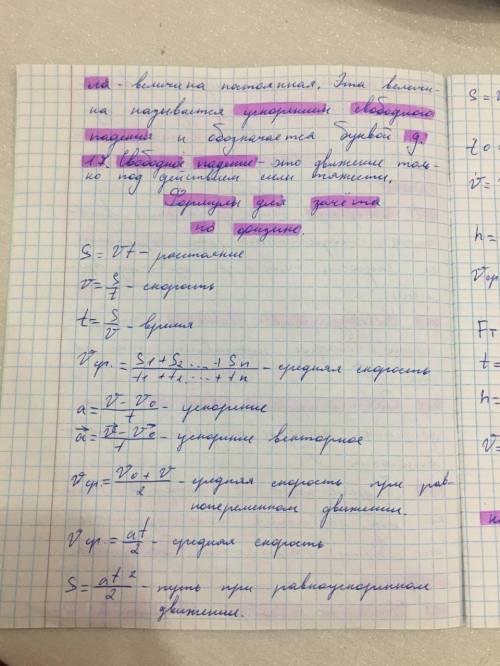 ла - величина постоянная. Эта величи-
на называется ускорением свободного
падения и обозначается буквой g.
17. Свободное падение - это движение толь-
ко под действием силы тяжести.
Формулы для зачёта
по физике.
S = Vt - расстояние
V = S/t - скорость
t = S/V - время
Vср. = S1 + S2 ... + Sn / t1 + t2 ... + tn - средняя скорость
a = V - V0 / t - ускорение
a⃗ = V⃗ - V⃗0 / t - ускорение векторное
Vср. = V0 + V / 2 - средняя скорость при рав-
нопеременном движении.
Vср. = at/2 - средняя скорость
S = at²/2 - путь при равноускоренном
движении.
S =
t0 =
V =
h =
Vср.
Fт
t =
h =
V =